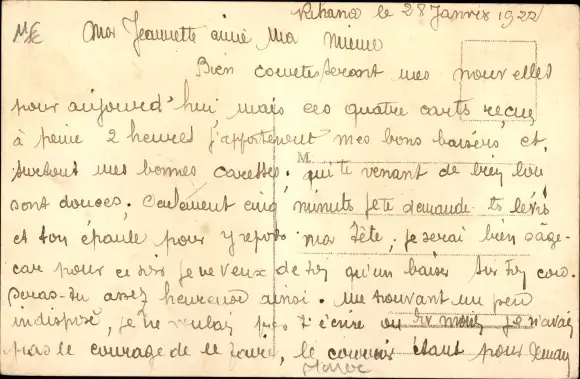 Rihana le 28 Janvier 1922
Ma Jeannette aimé Ma Mieme
Bien courtes seront mes nouvelles
pour aujourd'hui, mais ces quatre carts reçus
à peine 2 heures j'apportent mes bons baisers, et
surtout mes bonnes caresses. qui te venant de bien loin
M.
sont douces. Seulement cinq minuts je te demande ts levrs
et ton épaule pour y repose ma tête, je serai bien sage
car pour ce soir je ne veux de toi qu'un baiser sur toy cou.
Seras-tu assez heureuse ainsi. Me trouvant un peu
indisposé, je ne voulai pas t'écrire ou du moins je n'avais
pas le courage de le faire, le courrier étant pour demain
Maroc